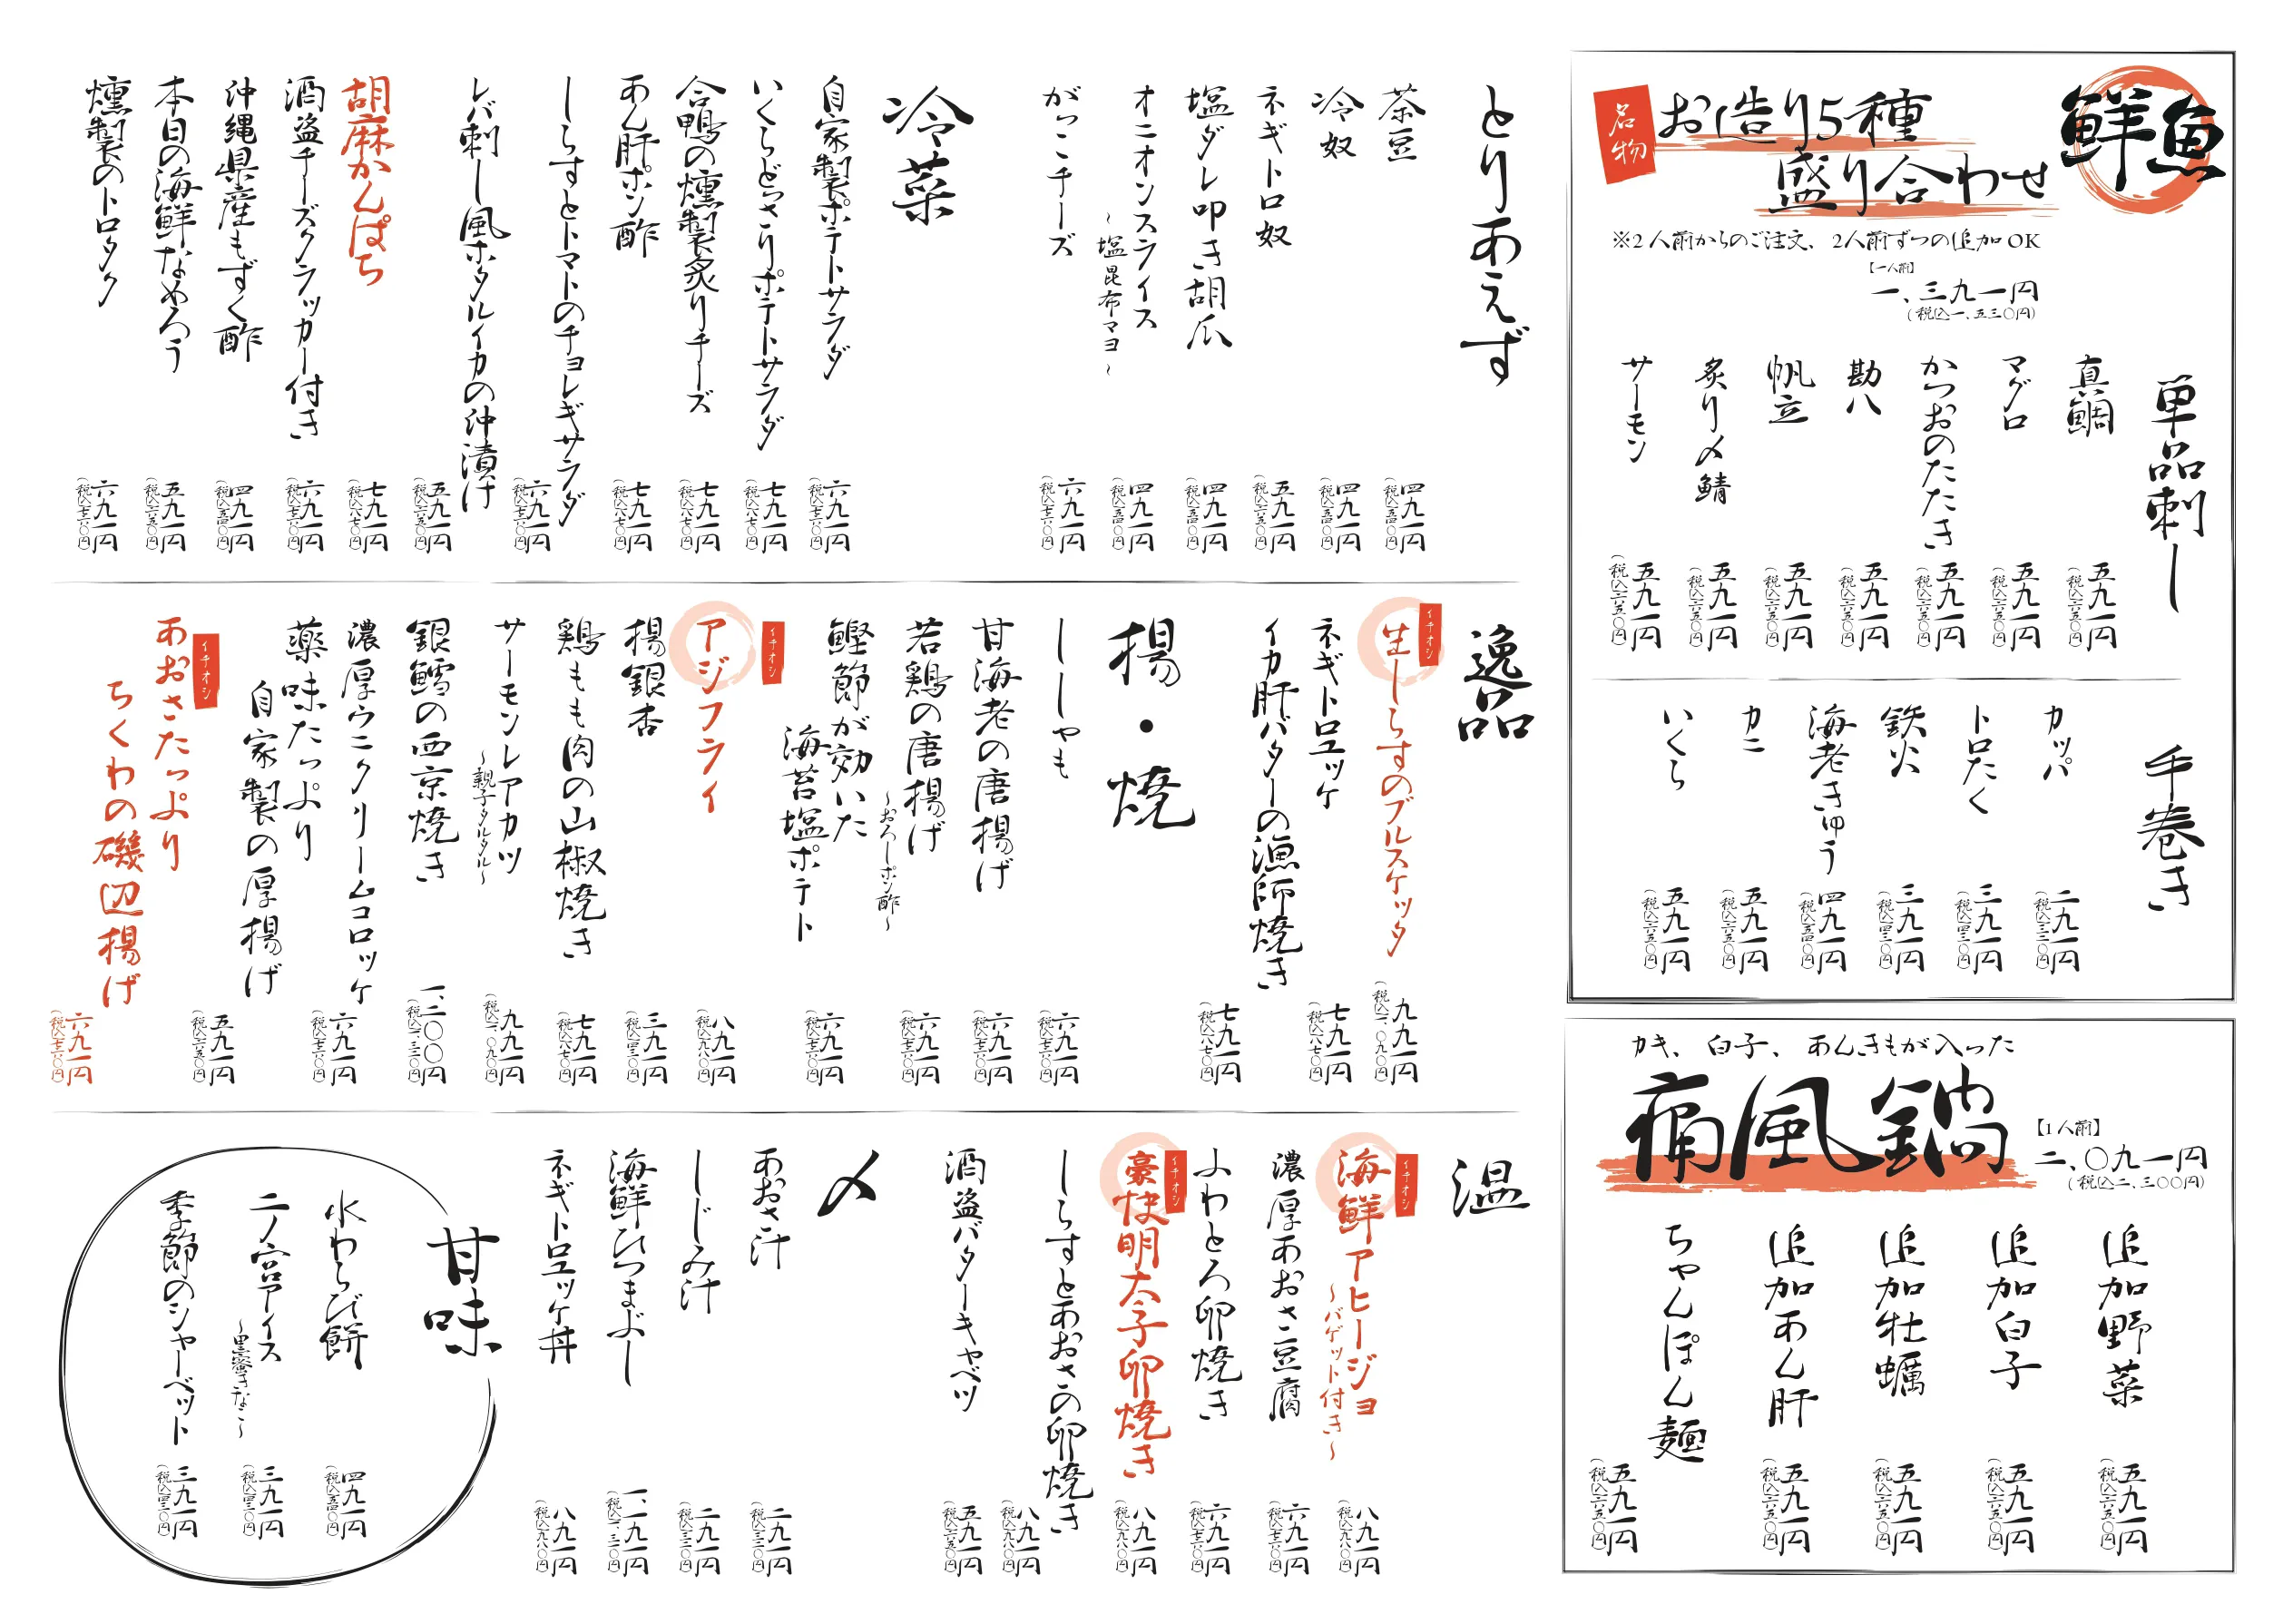 鮮魚
名物
お造り5種
盛り合わせ
※2人前からのご注文、2人前ずつの追加OK
【一人前】
一、三九一円
(税込一、五三〇円)
単品刺し
真鯛
五九一円
(税込六五〇円)
マグロ
五九一円
(税込六五〇円)
かつおのたたき
五九一円
(税込六五〇円)
勘八
五九一円
(税込六五〇円)
帆立
五九一円
(税込六五〇円)
炙り〆鯖
五九一円
(税込六五〇円)
サーモン
五九一円
(税込六五〇円)
手巻き
カッパ
二九一円
(税込三二〇円)
トロたく
三九一円
(税込四三〇円)
鉄火
三九一円
(税込四三〇円)
海老きゅう
四九一円
(税込五四〇円)
カニ
五九一円
(税込六五〇円)
いくら
五九一円
(税込六五〇円)
カキ、白子、あんきもが入った
痛風鍋
【1人前】
二、〇九一円
(税込二、三〇〇円)
追加野菜
五九一円
(税込六五〇円)
追加白子
五九一円
(税込六五〇円)
追加牡蠣
五九一円
(税込六五〇円)
追加あん肝
五九一円
(税込六五〇円)
ちゃんぽん麺
五九一円
(税込六五〇円)
とりあえず
茶豆
四九一円
(税込五四〇円)
冷奴
四九一円
(税込五四〇円)
ネギトロ奴
五九一円
(税込六五〇円)
塩ダレ叩き胡瓜
四九一円
(税込五四〇円)
オニオンスライス
~塩昆布マヨ~
四九一円
(税込五四〇円)
がっこチーズ
六九一円
(税込七六〇円)
冷菜
自家製ポテトサラダ
六九一円
(税込七六〇円)
いくらどっさりポテトサラダ
七九一円
(税込八七〇円)
合鴨の燻製炙りチーズ
七九一円
(税込八七〇円)
あん肝ポン酢
七九一円
(税込八七〇円)
しらすとトマトのチョレギサラダ
六九一円
(税込七六〇円)
レバ刺し風ホタルイカの沖漬け
五九一円
(税込六五〇円)
胡麻かんぱち
七九一円
(税込八七〇円)
酒盗チーズクラッカー付き
六九一円
(税込七六〇円)
沖縄県産もずく酢
四九一円
(税込五四〇円)
本日の海鮮なめろう
五九一円
(税込六五〇円)
燻製のトロタク
六九一円
(税込七六〇円)
逸品
イチオシ
生しらすのブルスケッタ
九九一円
(税込一、〇九〇円)
ネギトロユッケ
七九一円
(税込八七〇円)
イカ肝バターの漁師焼き
七九一円
(税込八七〇円)
揚・焼
ししゃも
六九一円
(税込七六〇円)
甘海老の唐揚げ
六九一円
(税込七六〇円)
若鶏の唐揚げ
~おろしポン酢~
六九一円
(税込七六〇円)
鰹節が効いた
海苔塩ポテト
六九一円
(税込七六〇円)
イチオシ
アジフライ
八九一円
(税込九八〇円)
揚銀杏
三九一円
(税込四三〇円)
鶏もも肉の山椒焼き
七九一円
(税込八七〇円)
サーモンレアカツ
~親子タルタル~
九九一円
(税込一、〇九〇円)
銀鱈の西京焼き
一、二〇〇円
(税込一、三二〇円)
濃厚ウニクリームコロッケ
六九一円
(税込七六〇円)
薬味たっぷり
自家製の厚揚げ
五九一円
(税込六五〇円)
イチオシ
あおさたっぷり
ちくわの磯辺揚げ
六九一円
(税込七六〇円)
温
イチオシ
海鮮アヒージョ
~バゲット付き~
八九一円
(税込九八〇円)
濃厚あおさ豆腐
六九一円
(税込七六〇円)
ふわとろ卵焼き
六九一円
(税込七六〇円)
イチオシ
豪快明太子卵焼き
八九一円
(税込九八〇円)
しらすとあおさの卵焼き
八九一円
(税込九八〇円)
酒盗バターキャベツ
五九一円
(税込六五〇円)
〆
あおさ汁
二九一円
(税込三二〇円)
しじみ汁
二九一円
(税込三二〇円)
海鮮ひつまぶし
一、一九一円
ネギトロユッケ丼
八九一円
(税込九八〇円)
甘味
水わらび餅
四九一円
(税込五四〇円)
二ノ宮アイス
~黒蜜きなこ~
三九一円
(税込四三〇円)
季節のシャーベット
三九一円
(税込四三〇円)